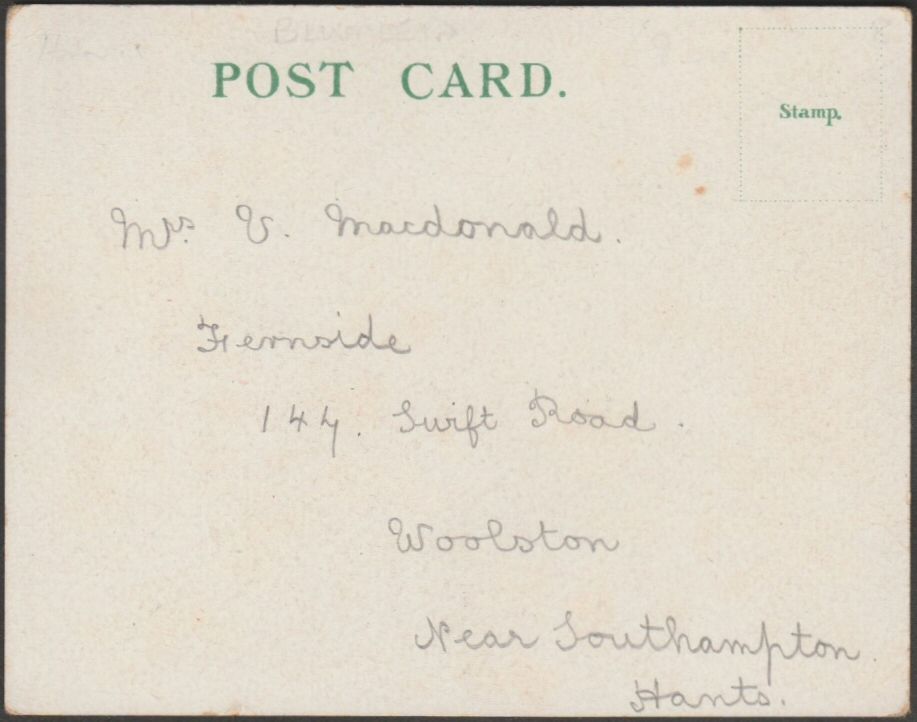 POST CARD.
Stamp.
Mrs. V. Macdonald.
Fernside
147. Swift Road.
Woolston
Near Southampton
Hants.